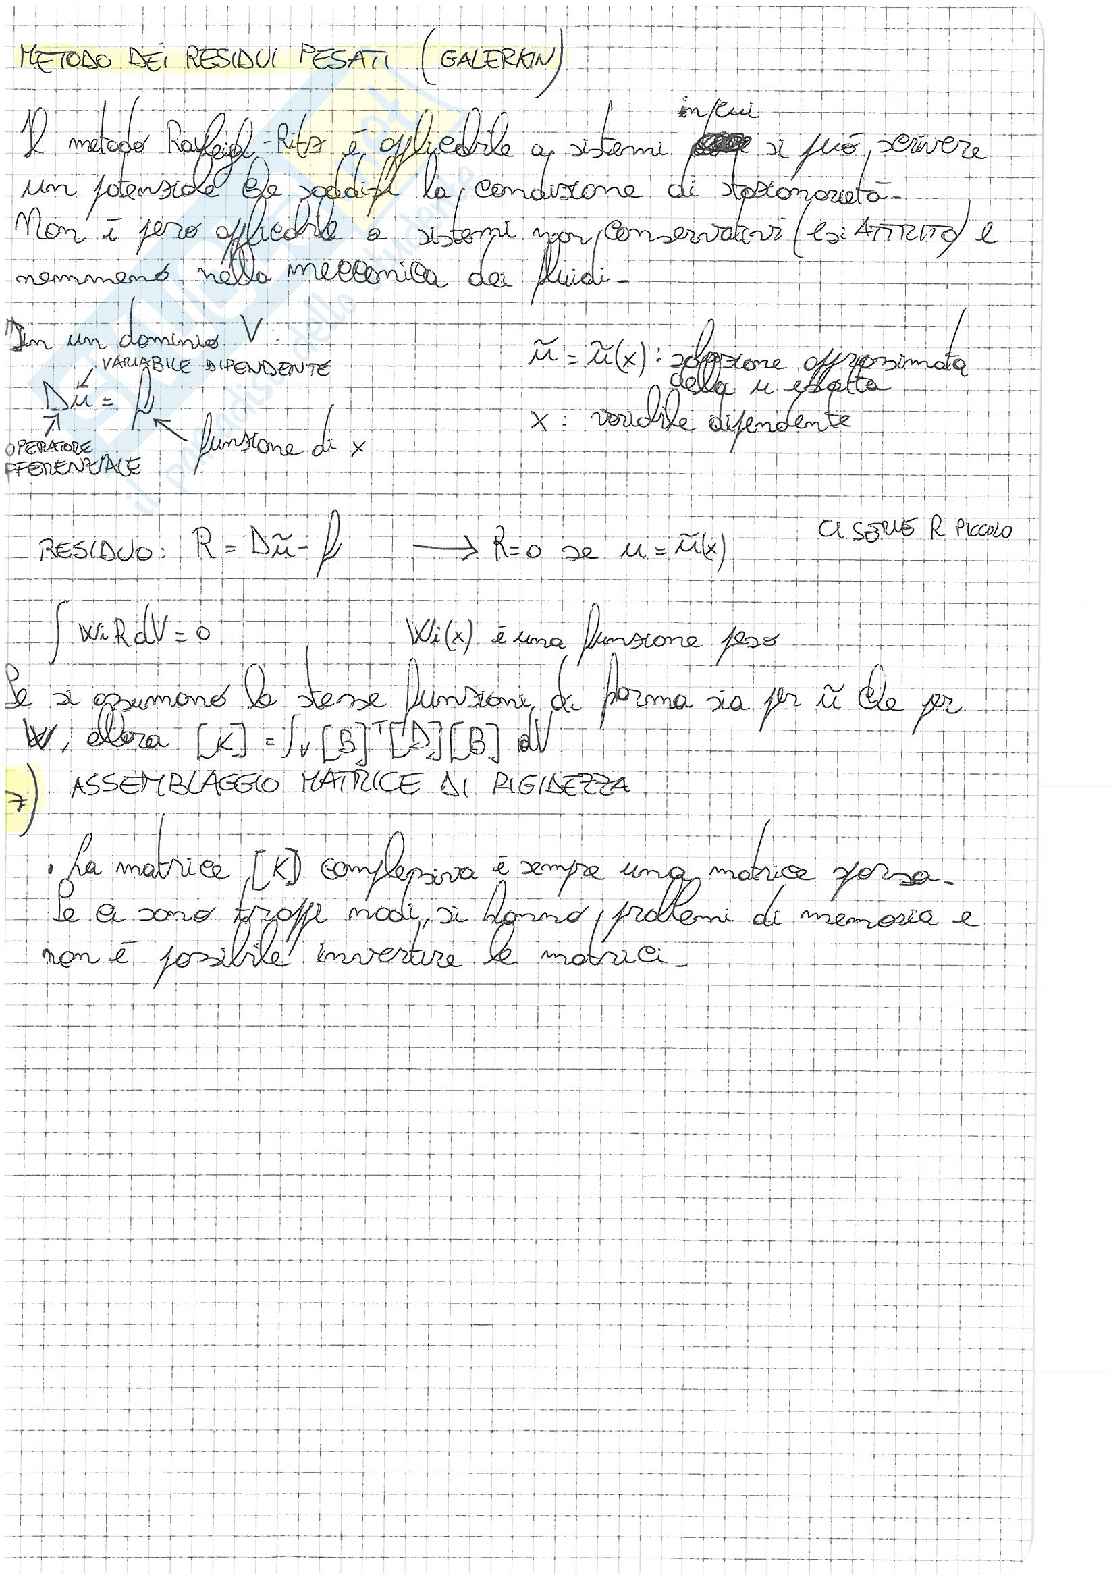 METODO DEI RESIDUI PESATI (GALERKIN)
in cui
Il metodo Rayleigh-Ritz è applicabile a sistemi si può scrivere
un potenziale che soddisfi la condizione di stazionarietà.
Non è però applicabile a sistemi non conservativi (es: ATTRITO) e
nemmeno nella meccanica dei fluidi.
In un dominio V:
VARIABILE DIPENDENTE
Du = f
OPERATORE
FFERENZIALE
funzione di x
ũ = ũ(x): soluzione approssimata
della u esatta
x: variabile dipendente
RESIDUO: R = Dũ - f → R=0 se u = ũ(x)
CI SERVE R PICCOLO
∫ Wi R dV = 0 Wi(x) è una funzione peso
Se si assumono le stesse funzioni di forma sia per ũ che per
W, allora [K] = ∫v [B]ᵀ[D][B] dV
7) ASSEMBLAGGIO MATRICE DI RIGIDEZZA
• La matrice [K] complessiva è sempre una matrice sparsa.
Se ci sono troppi nodi, si hanno problemi di memoria e
non è possibile invertire le matrici.